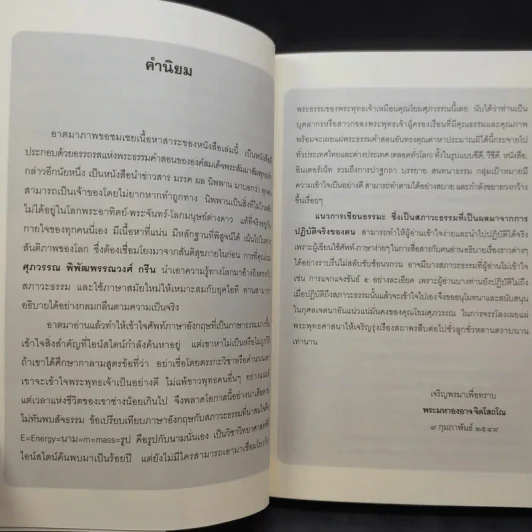 คำนิยม
อาตมาภาพขอชมเชยเนื้อหาสาระของหนังสือเล่มนี้ เป็นหนังสือ
ประกอบด้วยอรรถรสแห่งพระธรรมคำสอนขององค์สมเด็จพระสัมมาสัมพุทธเจ้า
กล่าวอีกนัยหนึ่ง เป็นหนังสือนำข่าวสาร มรรค ผล นิพพาน มาบอกว่า ทุกคน
สามารถเป็นเจ้าของโดยไม่ยากหากทำถูกทาง นิพพานเป็นสิ่งที่ไม่ไกล
ไม่ได้อยู่ในโลกพระอาทิตย์-พระจันทร์-โลกมนุษย์ต่างดาว แท้ที่จริงอยู่ใน
กายใจของทุกคนนี้เอง มีเนื้อหาที่แน่น มีหลักฐานที่พิสูจน์ได้ เน้นไปในทาง
สันติภาพของโลก ซึ่งต้องเชื่อมโยงมาจากสันติสุขภายในก่อน การที่คุณโยม
ศุภวรรณ พิพัฒพรรณวงศ์ กรีน นำเอาความรู้ทางโลกมาอ้างอิงตรงกับ
สภาวะธรรม และใช้ภาษาสมัยใหม่ให้เหมาะสมกับยุคไอที ท่านสามารถ
อธิบายได้อย่างกลมกลืนตามความเป็นจริง
อาตมาอ่านแล้วทำให้เข้าใจศัพท์ภาษาอังกฤษที่เป็นภาษาธรรมมากขึ้น
เข้าใจสิ่งสำคัญที่ไอน์สไตน์กำลังค้นหาอยู่ แต่เขาหาไม่เป็นหรือไม่ถูกวิธี
ถ้าเขาได้ศึกษากาลามสูตรข้อที่ว่า อย่าเชื่อโดยตรรกะวิชาหรือคำนวณเอา
เขาจะเข้าใจพระพุทธเจ้าเป็นอย่างดี ไม่แพ้ชาวพุทธคนอื่นๆ อย่างแน่นอน
แต่เวลาแห่งชีวิตของเขาช่างน้อยเกินไป จึงพลาดโอกาสนี้อย่างน่าเสียดาย
ไม่ทันพบสัจธรรม ข้อเปรียบเทียบภาษาอังกฤษกับสภาวะธรรมที่น่าสนใจคือ
E=Energy=นาม=m=mass=รูป คือรูปกับนามนั่นเอง เป็นวิชาวิทยาศาสตร์ที่
ไอน์สไตน์ค้นพบมาเป็นร้อยปี แต่ยังไม่มีใครสามารถเอามาเชื่อมโยงกับ
พระธรรมของพระพุทธเจ้าเหมือนคุณโยมศุภวรรณนี้เลย นับได้ว่าท่านเป็น
บุคลากรหรือสาวกของพระพุทธเจ้าผู้ครองเรือนที่มีคุณธรรมและคุณภาพ
พร้อมจะเผยแผ่พระธรรมคำสอนอันทรงคุณค่าหาประมาณมิได้นี้กระจายไป
ทั่วประเทศไทยและต่างประเทศ (ตลอดทั่วโลก) ทั้งในรูปแบบซีดี, วีซีดี, หนังสือ,
อินเตอร์เน็ท รวมถึงการปาฐกถา บรรยาย สนทนาธรรม กลุ่มเป้าหมายมี
ความเข้าใจเป็นอย่างดี สามารถทำตามได้อย่างสบาย และกำลังขยายวงกว้าง
ขึ้นเรื่อยๆ
แนวการเขียนธรรมะ ซึ่งเป็นสภาวะธรรมที่เป็นผลมาจากการ
ปฏิบัติจริงของตน สามารถทำให้ผู้อ่านเข้าใจง่ายและนำไปปฏิบัติได้จริง
เพราะผู้เขียนใช้ศัพท์ภาษาง่ายๆในการสื่อสารกับคนอ่านอธิบายเรื่องราวต่างๆ
ได้อย่างราบรื่นไม่สลับซับซ้อนกวน อาจมีบางสภาวะธรรมที่ผู้อ่านไม่เข้าใจ
เช่น การแจกแจงขันธ์ ๕ อย่างละเอียด เพราะผู้อ่านบางท่านยังปฏิบัติไม่ถึง
เมื่อปฏิบัติถึงสภาวะธรรมนั้นแล้วจะเข้าใจไปเอง จึงขออนุโมทนาและสนับสนุน
ในกุศลเจตนาอันแน่วแน่มั่นคงของคุณโยมศุภวรรณ ในการจรรโลงเผยแผ่
พระพุทธศาสนาให้เจริญรุ่งเรืองสถาพรสืบต่อไปชั่วลูกชั่วหลานตราบนาน
เท่านาน
เจริญพรมาเพื่อทราบ
พระมหาองอาจ จิตโสภโณ
๙ กุมภาพันธ์ ๒๕๔๙